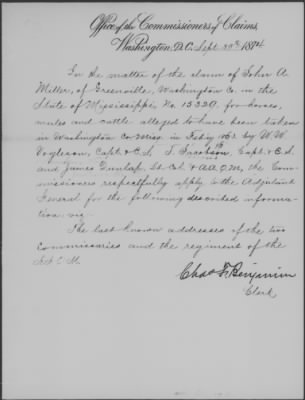 Office of the Commissioners of Claims,
Washington, D.C. Sept. 1874.
In the matter of the claim of John A.
Miller, of Greenville, Washington Co. in the
State of Mississippi, No. 15329. for horses,
mules and cattle alleged to have been taken
in Washington Co. Miss in by W. W.
Capt. & C.S. S. Jackson, Capt. & C.S.
and James Dunlap, Lt Col. & A.A.Q.M, the Com-
missioners respectfully apply to the Adjutant
General for the following described information
viz-
The last known addresses of the two
commissaries and the regiment of the
Chas F. Benjamin
Clerk